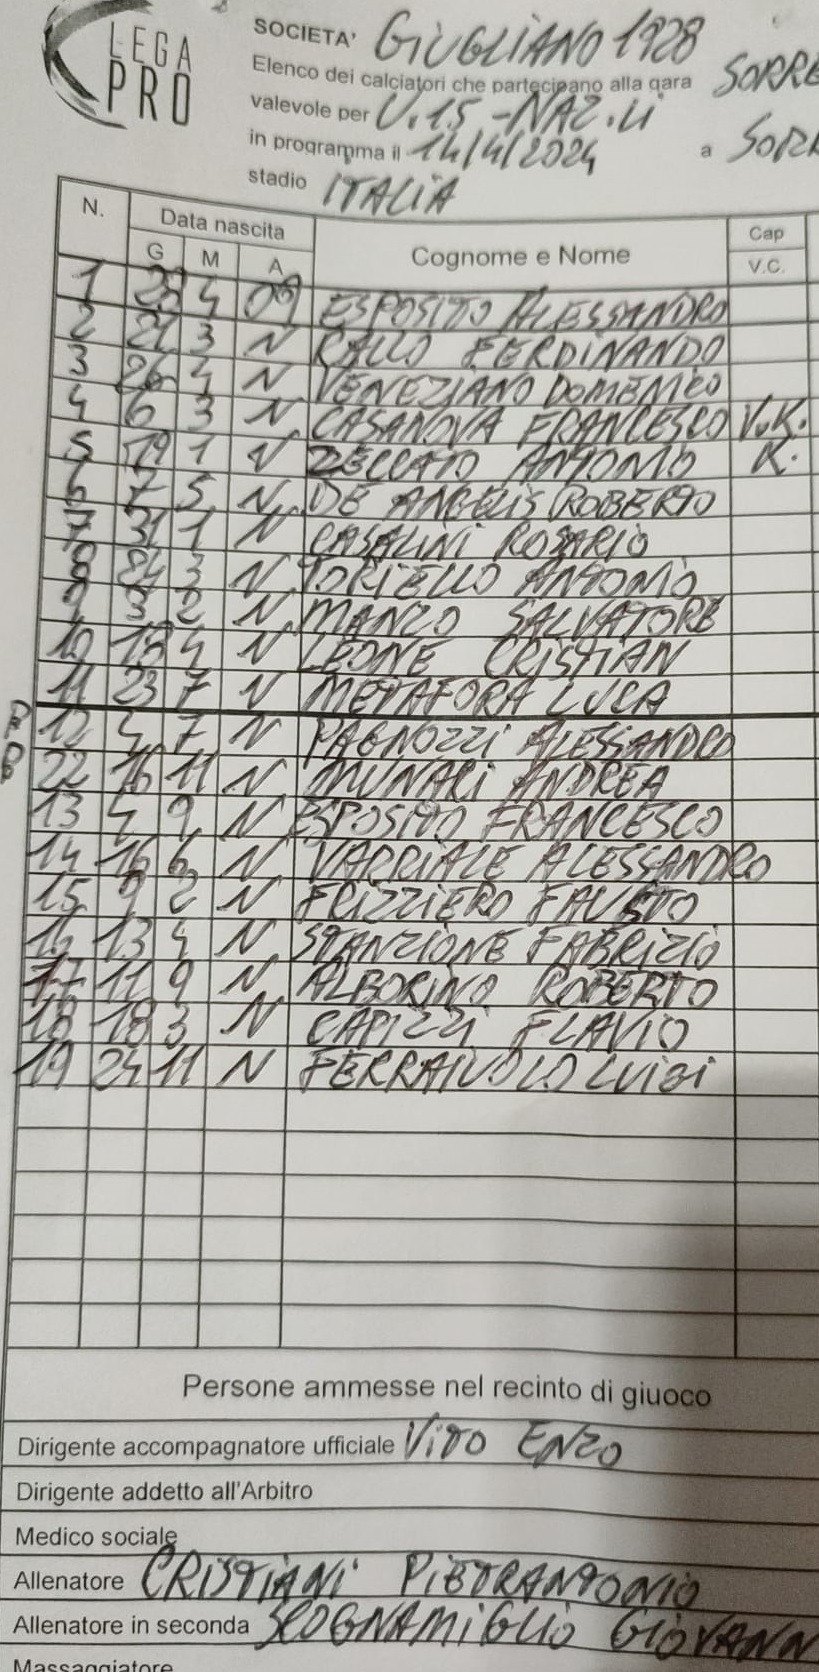 LEGA
PRO
SOCIETA' GIUGLIANO 1928
Elenco dei calciatori che partecipano alla gara SORRE
valevole per U.15 - NAZ.LI
in programma il 14/4/2024 a SORR
stadio ITALIA
N. Data nascita Cognome e Nome Cap
G M A V.C.
1 4 09 ESPOSITO ALESSANDRO
2 21 3 N RALLO FERDINANDO
3 26 4 N VENEZIANO DOMENICO
4 6 3 N CASANOVA FRANCESCO V.K.
5 19 1 N ZECCATO ANTONIO K.
6 7 5 N DE ANGELIS ROBERTO
7 31 1 N CASALINI ROSARIO
8 3 N TORIELLO ANTONIO
9 3 2 N MANZO SALVATORE
10 18 4 N LEONE CRISTIAN
11 23 7 N METAFORA LUCA
12 4 7 N PAGNOZZI ALESSANDRO
22 16 11 N MUNARI ANDREA
13 4 9 N ESPOSITO FRANCESCO
14 16 6 N VARRIALE ALESSANDRO
15 9 2 N FRIZZIERO FAUSTO
16 13 4 N STANZIONE FABRIZIO
17 11 9 N ALBORINO ROBERTO
18 18 3 N CAPIZZI FLAVIO
19 24 11 N FERRAIUOLO LUIGI
Persone ammesse nel recinto di giuoco
Dirigente accompagnatore ufficiale VITO ENZO
Dirigente addetto all'Arbitro
Medico sociale
Allenatore CRISTIANI PIETRANTONIO
Allenatore in seconda SCOGNAMIGLIO GIOVANN
Massaggiatore